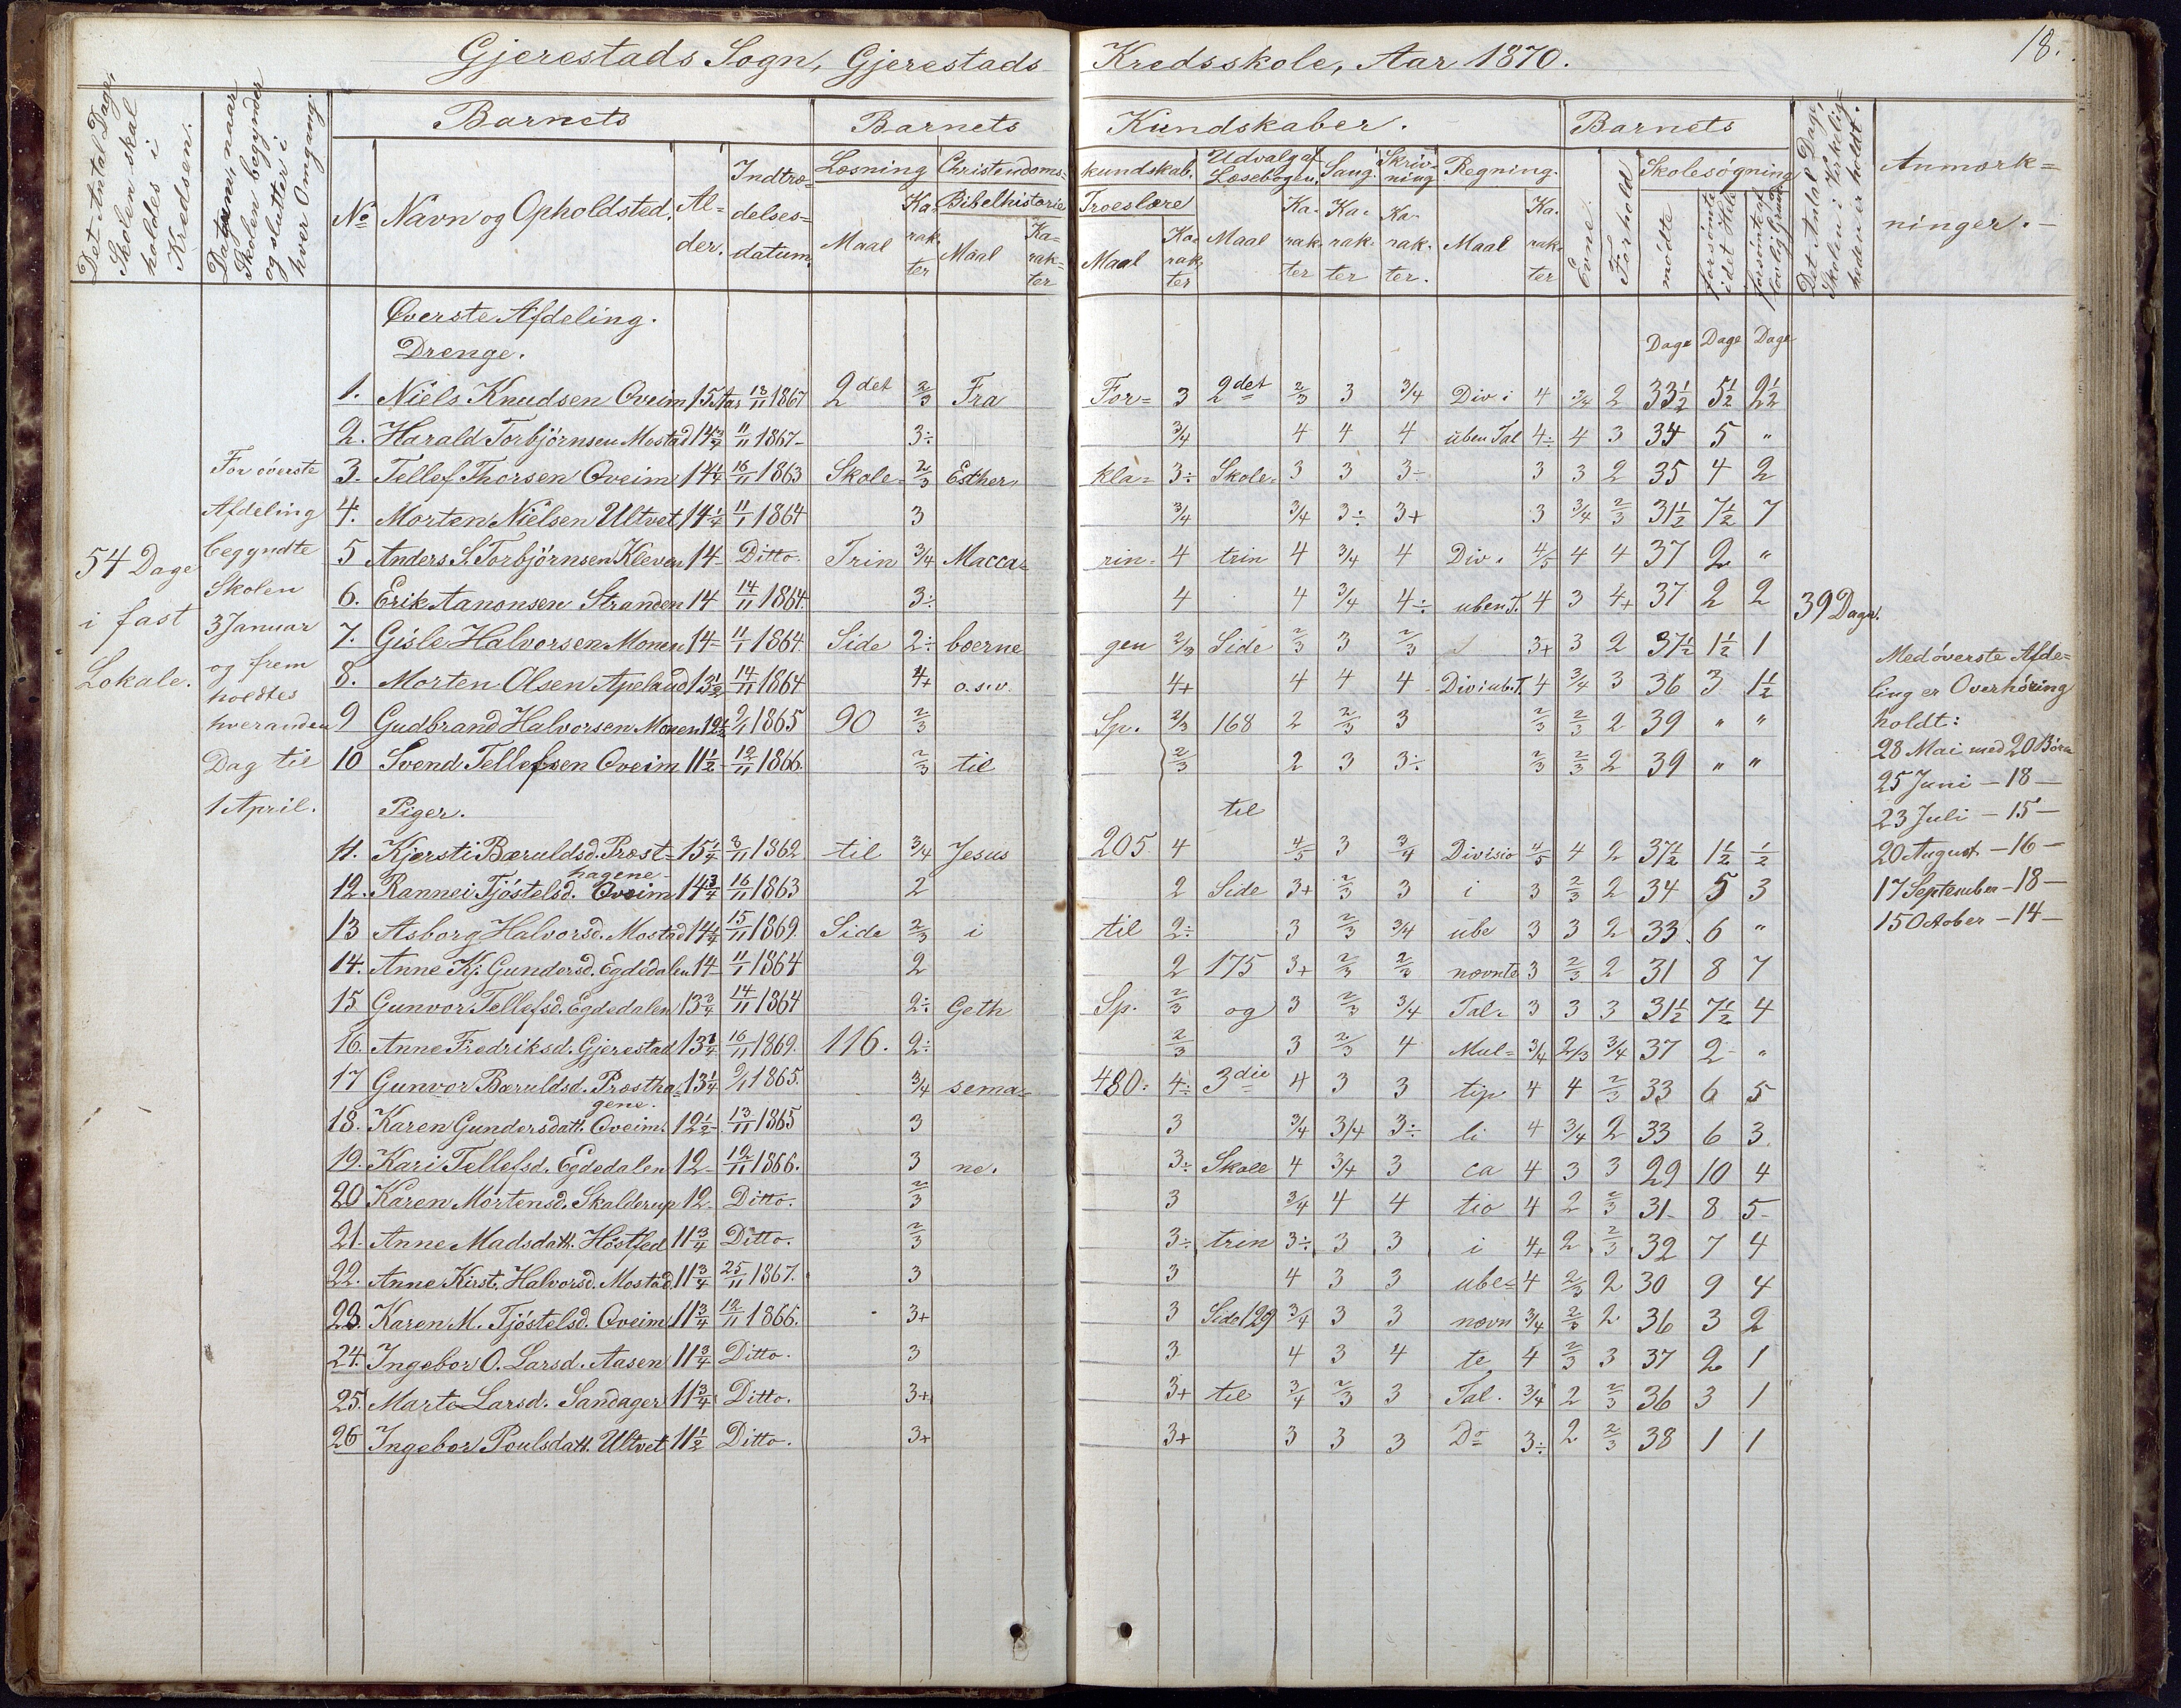 Gjerestads Sogn, Gjerestads Kredsskole, Aar 1870.
18.
Det Antal Dage, Skolen skal holdes i Kredsen.
Datum, naar Skolen begynder og slutter i hver Omgang.
Barnets
Barnets Kundskaber.
Barnets
Det Antal Dage, Skolen i Virkeligheden er holdt.
Anmærkninger.
No
Navn og Opholdsted.
Alder.
Indtrædelsesdatum.
Læsning
Maal
Karakter
Christendomskundskab.
Bibelhistorie
Maal
Karakter
Troeslære
Maal
Karakter
Udvalg af Læsebogen.
Maal
Karakter
Sang.
Karakter
Skrivning
Karakter.
Regning.
Maal
Karakter
Evne.
Forhold
Skolesøgning
mødte
forsømte i det Hele
forsømte af lovlig Grund
Øverste Afdeling.
Dage Dage Dage
Drenge.
1. Niels Knudsen Oveim 15 Aar 13/11 1867 2det 2/3 Fra For= 3 2det 2/3 3 3/4 Div i 4 3/4 2 33½ 5½ 2½
2. Harald Torbjørnsen Mostad 14¾ 11/11 1867 3÷ 3/4 4 4 4 üben Tal 4÷ 4 3 34 5 "
3. Tellef Thorsen Oveim 14¼ 16/11 1863 Skole= 2/3 Esther, kla= 3÷ Skole= 3 3 3÷ 3 3 2 35 4 2
4. Morten Nielsen Ultvet 14¼ 11/1 1864 3 3/4 3/4 3÷ 3+ 3 3/4 2/3 31½ 7½ 7
5 Anders S. Torbjørnsen Kleven 14 Ditto. Trin 3/4 Macca= rin= 4 trin 4 3/4 4 Div. 4/5 4 4 37 2 "
6. Erik Aanonsen Stranden 14 14/11 1864. 3÷ 4 4 3/4 4÷ uben T. 4 3 4+ 37 2 2
7. Gisle Halvorsen Monen 14 11/1 1864. Side 2÷ bæerne gen 2/3 Side 2/3 3 2/3 3+ 3 2 37½ 1½ 1
8. Morten Olsen Apeland 13½ 14/11 1864 4+ o.s.v. 4+ 4 4 4 Div i ub. T. 4 3/4 3 36 3 1½
9 Gudbrand Halvorsen Monen 12½ 9/1 1865 90 2/3 Sp. 2/3 168 2 2/3 3 2/3 2/3 2 39 " "
10 Svend Tellefsen Oveim 11½ 12/11 1866. 2/3 til 2/3 2 3 3÷ 2/3 2/3 2 39 " "
Piger. til
11. Kjersti Bæruldsd. Præst=hagene 15¼ 3/11 1862 til 3/4 Jesus 205 4 4/5 3 3/4 Divisio 4/5 4 2 37½ 1½ ½
12. Rannei Tjøstelsd. Oveim 14¾ 16/11 1863 2 2 Side 3+ 2/3 3 i 3 2/3 2 34 5 3
13 Asborg Halvorsd. Mostad 14¼ 15/11 1869 Side 2/3 i til 2÷ 3 2/3 3/4 ube 3 3 2 33 6 "
14. Anne Kj. Gundersd. Egdedalen 14 11/1 1864 2 2 175 3+ 2/3 2/3 nævnte 3 2/3 2 31 8 7
15 Gunvor Tellefsd. Egdedalen 13¾ 14/11 1864 2÷ Geth Sp. 2/3 og 3 2/3 3/4 Tal= 3 3 3 31½ 7½ 4
16. Anne Fredriksd. Gjerestad 13¼ 16/11 1869. 116. 2÷ 2/3 3 2/3 4 Mul= 3/4 2/3 3/4 37 2 "
17 Gunvor Bæruldsd. Præsthagene. 13¼ 9/1 1865. 3/4 sema= 480= 4÷ 3die 4 3 3 tip 4 4 2/3 33 6 5
18. Karen Gundersdatt. Oveim. 12½ 13/11 1865 3 3 3/4 3/4 3÷ li 4 3/4 2 33 6 3
19. Kari Tellefsd. Egdedalen 12 12/11 1866. 3 ne. 3÷ Skole 4 3/4 3 ca 4 3 3 29 10 4
20 Karen Mortensd. Skalderup 12 Ditto. 2/3 3 3/4 4 4 tio 4 2 2/3 31 8 5
21. Anne Madsdatt. Høstfed 11¾ Ditto. 2/3 3÷ trin 3÷ 3 3 i 4+ 2 2/3 32 7 4
22. Anne Kirst. Halvorsd. Mostad 11¾ 25/11 1867. 3 3 4 3 3 ube= 4 2/3 2 30 9 4
23. Karen M. Tjøstelsd. Oveim 11¾ 12/11 1866. 3+ 3 Side 129 3/4 3 3 nævn 3/4 2/3 2 36 3 2
24. Ingebor O. Larsd. Aasen 11¾ Ditto. 3 3 4 3 4 te 4 2/3 3 37 2 1
25. Marte Larsd. Sandager 11¾ Ditto. 3+ 3+ til 3/4 2/3 3 Tal. 3/4 2 2/3 36 3 1
26 Ingebor Poulsdatt. Ultvet 11½ Ditto. 3+ 3+ 3 3 3 Do 3÷ 2 2/3 38 1 1
54 Dage
i fast
Lokale.
For øverste
Afdeling
begyndte
Skolen
3 Januar
og frem
holdtes
hveranden
Dag til
1 April.
39 Dage.
Med øverste Afde=
ling er Overhøring
holdt:
28 Mai med 20 Børn
25 Juni - 18 -
23 Juli - 15 -
20 August - 16 -
17 September - 18 -
15 October - 14 -